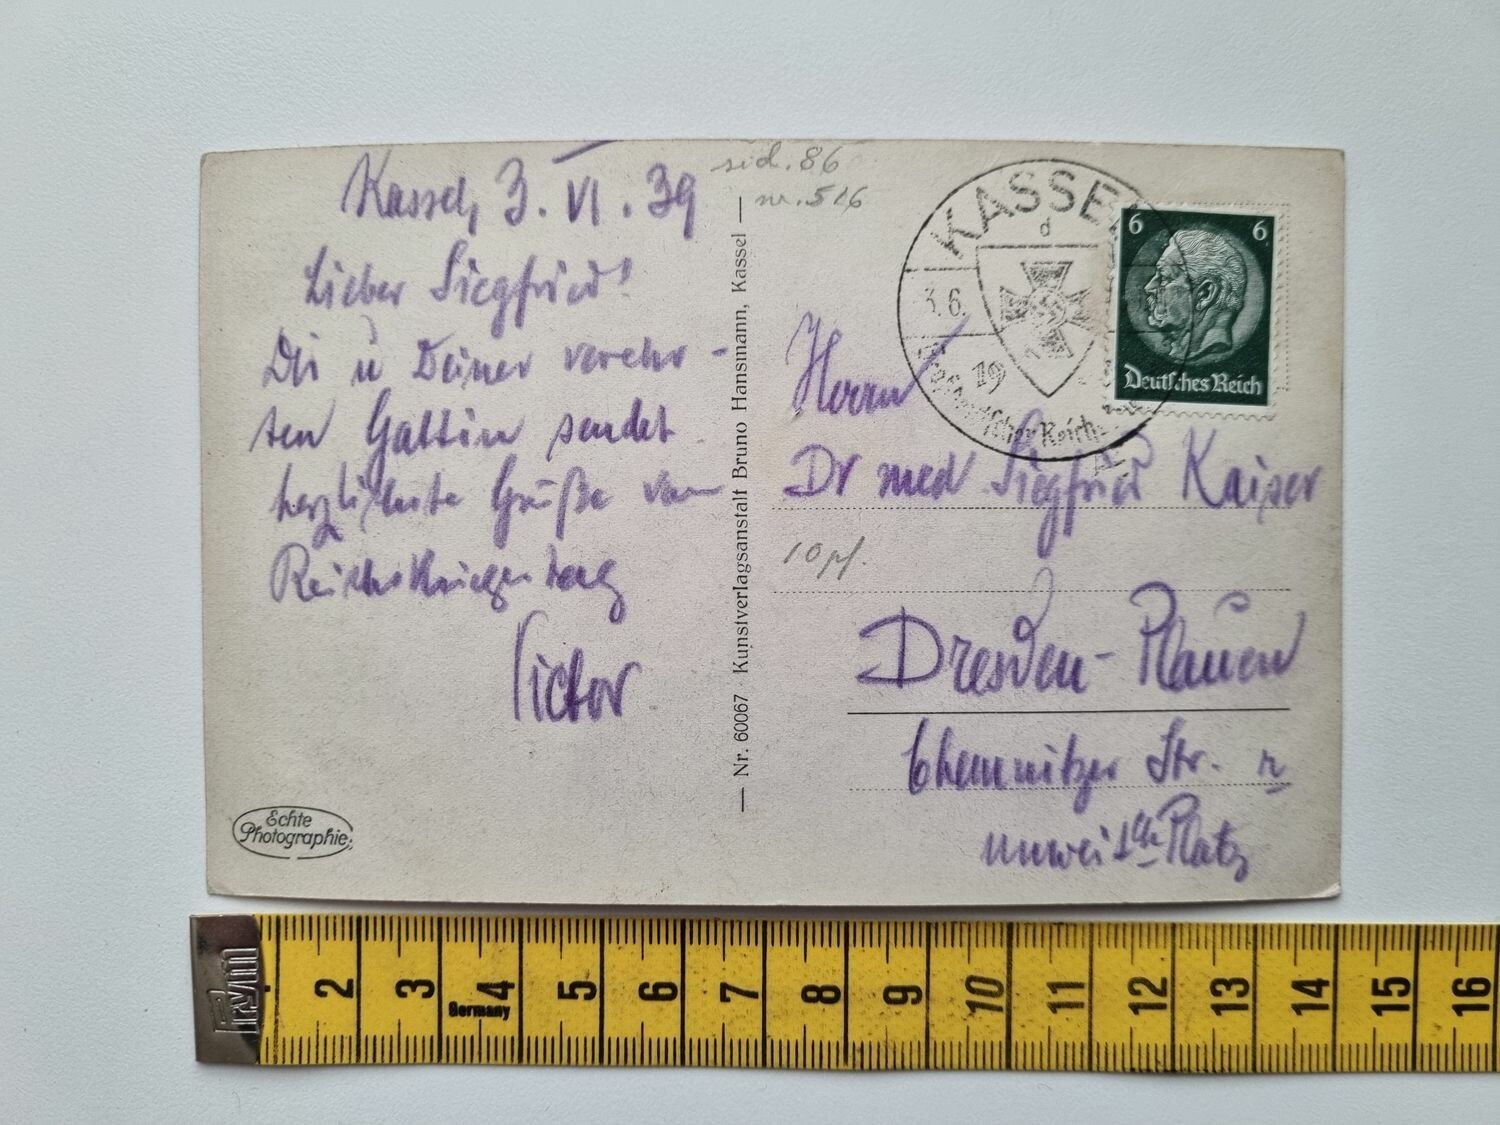 Kassel, 3. VI. 39
Lieber Siegfried!
Dir u Deiner verehr-
ten Gattin sendet
herzlichste Grüße vom
Reichskriegertag
Victor
Echte
Photographie
— Nr. 60067 · Kunstverlagsanstalt Bruno Hansmann, Kassel —
sid. 86
nr. 516
KASSEL
d
3.6.
19
Großdeutscher Reichs
6 6
Deutsches Reich
Herrn
Dr med Siegfried Kaiser
10 pf.
Dresden-Plauen
Chemnitzer Str.
unweit Platz
PRYM
Germany
2 3 4 5 6 7 8 9 10 11 12 13 14 15 16